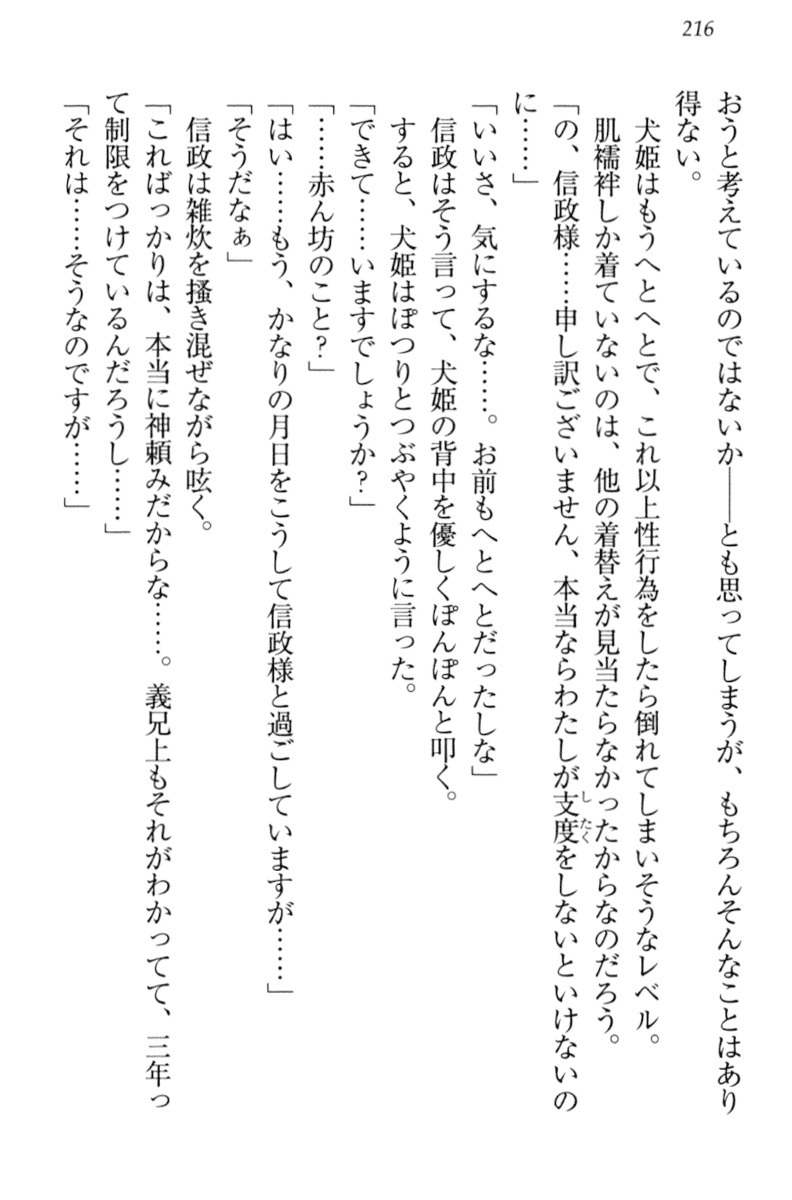 216
おうと考えているのではないか――とも思ってしまうが、もちろんそんなことはあり
得ない。
犬姫はもうへとへとで、これ以上性行為をしたら倒れてしまいそうなレベル。
肌襦袢しか着ていないのは、他の着替えが見当たらなかったからなのだろう。
「の、信政様……申し訳ございません、本当ならわたしが支度をしないといけないの
に……」
「いいさ、気にするな……。お前もへとへとだったしな」
信政はそう言って、犬姫の背中を優しくぽんぽんと叩く。
すると、犬姫はぽつりとつぶやくように言った。
「できて……いますでしょうか?」
「……赤ん坊のこと?」
「はい……もう、かなりの月日をこうして信政様と過ごしていますが……」
「そうだなぁ」
信政は雑炊を掻き混ぜながら呟く。
「こればっかりは、本当に神頼みだからな……。義兄上もそれがわかってて、三年っ
て制限をつけているんだろうし……」
「それは……そうなのですが……」
したく